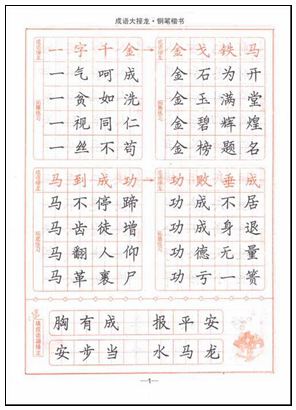 成语大接龙·钢笔楷书
一字千金
一气呵成
一贫如洗
一视同仁
一丝不苟
金戈铁马
金石为开
金玉满堂
金碧辉煌
金榜题名
马到成功
马不停蹄
马齿徒增
马翻人仰
马革裹尸
功败垂成
功成不居
功成身退
功德无量
功亏一篑
胸有成 报平安
安步当 水马龙
—1—